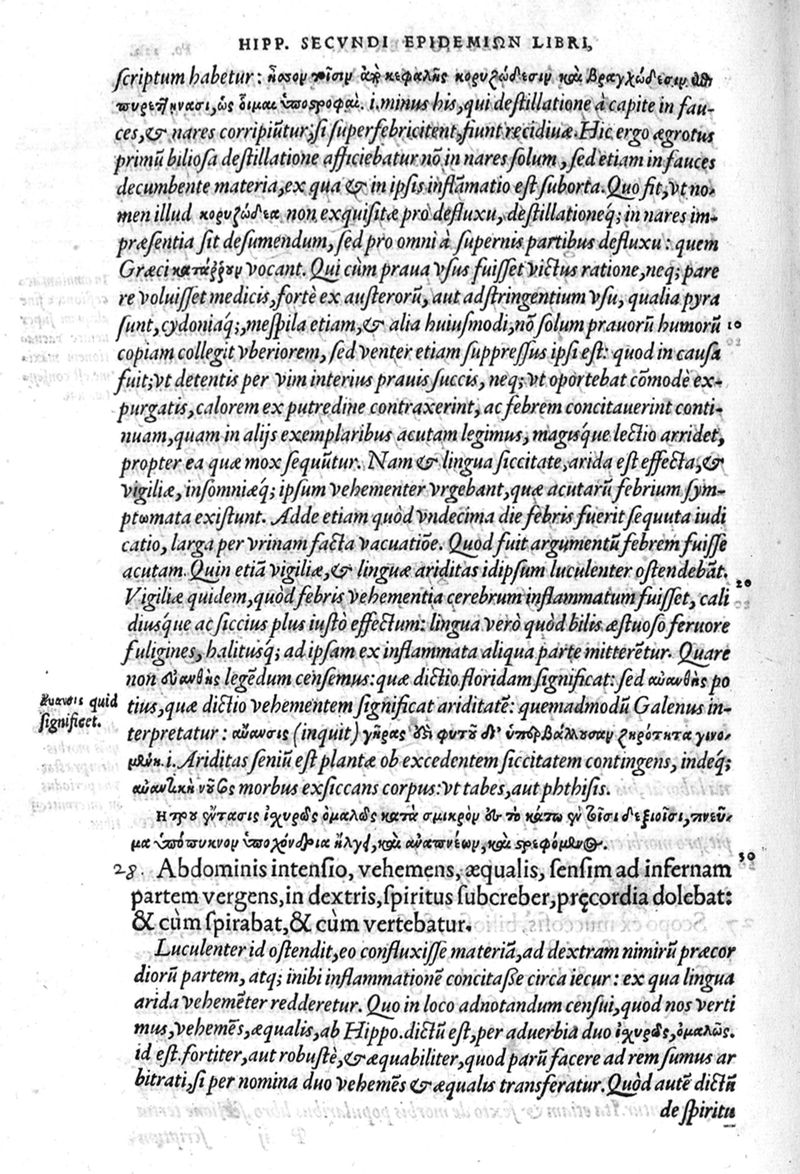 HIPP. SECVNDI EPIDEMIΩN LIBRI,
scriptum habetur: ἧσσον τοῖσιν ἀπὸ κεφαλῆς κορυζώδεσιν καὶ βραγχώδεσιν
i. minus his, qui destillatione à capite in fau-
ces, & nares corripiūtur; si superfebricitent, fiunt recidiuæ. Hic ergo ægrotus
primū biliosa destillatione afficiebatur nō in nares solum, sed etiam in fauces
decumbente materia, ex qua & in ipsis inflāmatio est suborta. Quo fit, vt no-
men illud κορυζώδεα non exquisitæ pro defluxu, destillationeq́; in nares im-
præsentia sit desumendum, sed pro omni à supernis partibus defluxu: quem
Græci κατάῤῥον vocant. Qui cùm praua vsus fuisset victus ratione, neq; pare
re voluisset medicis, fortè ex austerorū, aut adstringentium vsu, qualia pyra
sunt, cydoniaq́;, mespila etiam, & alia huiusmodi, nō solum prauorū humorū 10
copiam collegit vberiorem, sed venter etiam suppressus ipsi est: quod in causa
fuit; vt detentis per vim interius prauis succis, neq; vt oportebat cōmodè ex-
purgatis, calorem ex putredine contraxerint, ac febrem concitauerint conti-
nuam, quam in alijs exemplaribus acutam legimus, magisque lectio arridet,
propter ea quæ mox sequūtur. Nam & lingua siccitate, arida est effecta, &
vigiliæ, insomniæq́; ipsum vehementer vrgebant, quæ acutarū febrium sym-
ptωmata existunt. Adde etiam quòd vndecima die febris fuerit sequuta iudi
catio, larga per vrinam facta vacuatiōe. Quod fuit argumentū febrem fuisse
acutam. Quin etiā vigiliæ, & linguæ ariditas idipsum luculenter ostendebāt. 20
Vigiliæ quidem, quòd febris vehementia cerebrum inflammatum fuisset, cali
diusque ac siccius plus iustò effectum: lingua verò quòd bilis æstuoso feruore
fuligines, halitusq́; ad ipsam ex inflammata aliqua parte mitterētur. Quare
non εὐανθὴς legēdum censemus: quæ dictio floridam significat: sed αὐανθὴς po
Εὔανσις quid
significet.
tius, quæ dictio vehementem significat ariditatē: quemadmodū Galenus in-
terpretatur: αὔανσις (inquit) γῆρας ἐπὶ φυτοῦ δι' ὑπερβάλλουσαν ξηρότητα γινο-
μένη. i. Ariditas seniū est plantæ ob excedentem siccitatem contingens, indeq́;
αὐαντικὴ νοῦσος morbus exsiccans corpus: vt tabes, aut phthisis.
Ητρου ἔντασις ἰσχυρῶς ὁμαλῶς κατὰ σμικρὸν ἐς τὸ κάτω ἐν τοῖσι δεξιοῖσι, πνεῦ-
μα ὑπόπυκνον ὑποχόνδρια ἤλγει, καὶ ἀναπνέων, καὶ στρεφόμενος.
28. Abdominis intensio, vehemens, æqualis, sensim ad infernam 30
partem vergens, in dextris, spiritus subcreber, pręcordia dolebat:
& cùm spirabat, & cùm vertebatur.
Luculenter id ostendit, eo confluxisse materiā, ad dextram nimirū præcor
diorū partem, atq; inibi inflammationē concitasse circa iecur: ex qua lingua
arida vehemēter redderetur. Quo in loco adnotandum censui, quod nos verti
mus, vehemēs, æqualis, ab Hippo. dictū est, per aduerbia duo ἰσχυρῶς, ὁμαλῶς.
id est. fortiter, aut robustè, & æquabiliter, quod parū facere ad rem sumus ar
bitrati, si per nomina duo vehemēs & æqualis transferatur. Quòd autē dictū
de spiritu